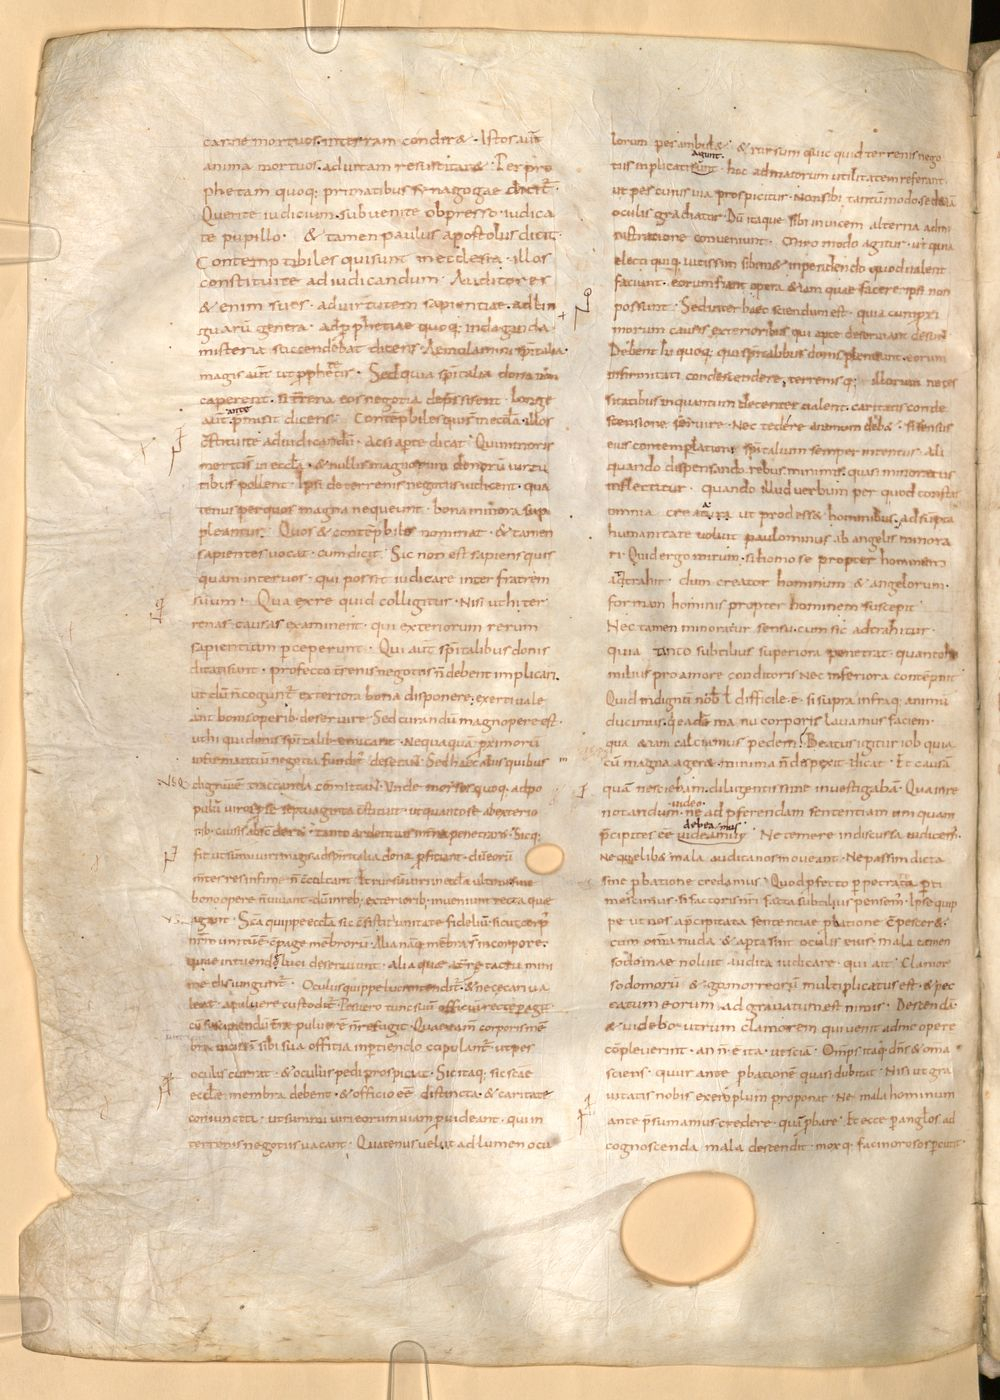 carne mortuos. in terram condere &. Istos aut̄
anima mortuos. ad uitam resuscitare &. Per pro
phetam quoq; primatibus synagogae dicit̄.
Querite iudicium. subuenite obpresso. iudica
te pupillo. & tamen paulus apostolus dicit.
Contemptibiles qui sunt in ecclesia. illos
constituite ad iudicandum. Auditores
& enim sues. ad uirtutem sapientiae. ad lin
guarū genera. ad pphetiae quoq; indaganda
misteria succendebat dicens. Aemulamini spītalia.
magis aut̄ ut pphetetis. Sed quia spītalia dona non
caperent. si t̄rena eos negotia depssissent. longe
aut̄ ante pmisit dicens. Contēptibiles qui sunt in eccła. illos
c̄stituite ad iudicandū. Acsi apte dicat. Qui minoris
meriti s̄ in eccła. & nullis magnorum donorū uirtu
tibus pollent. Ipsi de terrenis negotiis iudicent. qua
tenus per quos magna nequeunt. bona minora sup
pleantur. Quos & contēptibiles nominat. & tamen
sapientes uocat. cum dicit. Sic non est sapiens quis
quam inter uos. qui possit iudicare inter fratrem
suum. Qua ex re quid colligitur. Nisi ut hi ter
renas causas examinent. qui exteriorum rerum
sapientiam pceperunt. Qui aut̄ spītalibus donis
ditati sunt. profecto t̄renis negotiis n̄ debent implicari.
ut dū n̄ cogunt̄ exteriora bona disponere. exerti uale
ant bonis operib; deseruire. Sed curandū magnopere est.
ut hi qui donis spītalib; emicant. Nequaquā pximorū
infirmantiū negotia funditꝰ deserant. Sed haec aliis quibus
dignū ē tractanda cōmittant. Unde moyses quoq; ad po
pulū uiros p se septuaginta c̄stituit. ut quanto se ab exterio
rib; causis absconderet. tanto ardentius intima penetraret. Sicq;
fit ut sūmi uiri magis ad spiritalia dona pficiant. dū eorū
m̄tes res infimae n̄ c̄culcant. Et rursū uiri in eccła ultimi sine
bono opere n̄ uiuant. dū in reb; exteriorib; inueniunt recta quae
agant. Sc̄a quippe eccła sic c̄sistit unitate fidelium. sicut corpꝰ
nr̄m unitū ē c̄page mēbrorū. Alia nāq; mēbra s̄ in corpore.
quae intuendae luci deseruiunt. Alia quae a t̄rae tactu mini
me disiungunt̄. Oculus quippe luci intendit̄. & ne cecari ua
leat. a puluere custodit̄. Pes uero tunc suū officiū recte pagit.
cū suscipiendū t̄rae puluerē n̄ refugit. Quae tam̄ corporis mē
bra uicissim sibi sua officia inptiendo copulant̄. ut pes
oculis currat. & oculus pedi prospiciat. Sic itaq; s̄c̄ae
eccłae membra debent. & officio eē distincta. & caritate
coniuncta. ut summi uiri eorum uiam puideant. qui in
terrenis negotiis uacant. Quatenus uelut ad lumen ocu
lorum pes ambul&. & rursum quicquid terrenis nego
tiis implicati agunt. hoc ad maiorum utilitatem referant.
ut pes cuius uia prospicitur. Non sibi tantūmodo sed etiā
oculis gradiatur. Dū itaque sibi inuicem alterna admi
nistratione conueniunt. Miro modo agitur. ut quia
electi quiq; uicissim sibim& inpendendo quod ualent
faciunt. eorum fiant opera etiam quae facere ipsi non
possunt. Sed inter haec sciendum est. quia cum pri
morum causis exterioribus qui apte deseruiant desunt
Debent hi quoq; qui spītalibus donis pleni sunt. eorum
infirmitati condescendere, terrenisq; illorum neces
sitatibus in quantum decenter ualent. caritatis conde
scensione seruire. Nec tedere animum deb&. si sensus
eius contemplationi spītalium semper intentus. Ali
quando dispensando rebus minimis. quasi minoratus
inflectitur. quando illud uerbum per quod constat
omnia creata ut prodess& hominibus. adsūpta
humanitate uoluit paulominus ab angelis minora
ri. Quid ergo mirum. si homo se propter hominem
adtrahit. dum creator hominum & angelorum.
formam hominis propter hominem suscepit
Nec tamen minoratur sensu. cum sic adtrahitur.
quia tanto subtilius superiora penetrat. quanto hu
milius pro amore conditoris nec inferiora contēpnit
Quid indignū nob̄ ł difficile ē. si supra infraq; animū
ducimus. qui eadē manu corporis lauamus faciem.
qua etiam calciamus pedem. Beatus igitur iob quia
cū magna agere minima n̄ despexit. dicat. Et causā
quā nesciebam. diligentissime inuestigabā. Qua in re
notandum uideo. ne ad pferendam sententiam umquam
p̄cipites eē debeamus uideamur. Ne temere indiscussa iudicem̄.
Ne quelib& mala audita nos moueant. Ne passim dicta
sine pbatione credamus. Quod pfecto p petrare pti
mescimus. si factoris nr̄i facta subtilius pensem̄. Ipse quip
pe ut nos a p̄cipitata sententiae platione c̄pescer&.
cum om̄a nuda & aperta sint oculis eius. mala tamen
sodomae noluit audita iudicare. qui ait. Clamor
sodomorū & gomorreorū multiplicatus est. & pec
catum eorum adgrauatum est nimis. Descendā
& uidebo utrum clamorem qui uenit ad me opere
cōpleuerint. an n̄ ē ita. ut sciā. Om̄ps itaq; dn̄s & om̄a
sciens. quur ante pbationē quasi dubitat. Nisi ut gra
uitatis nobis exemplum proponat. Ne mala hominum
ante p̄sumamus credere. quā pbare. Et ecce p anglos ad
cognoscenda mala descendit. moxq; facinorosos pcutit.